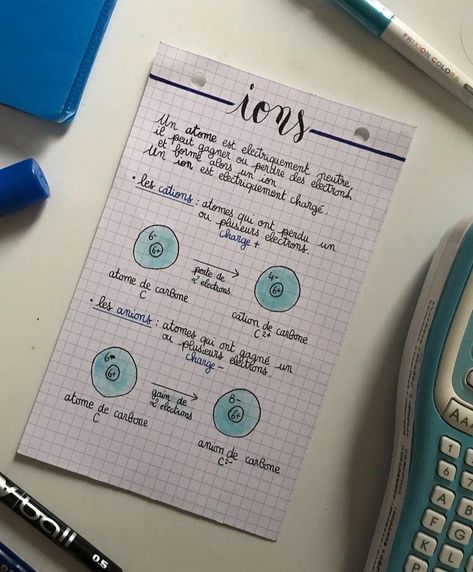 FRIXION COLORS
ions
Un atome est electriquement neutre,
il peut gagner ou perdre des electrons
et forme alors un ion.
Un ion est électriquement chargé.
• les cations : atomes qui ont perdu un
ou plusieurs electrons.
Charge +
6-
6+
perte de
2 electrons
4-
6+
atome de carbone
C
cation de carbone
C2+
• les anions : atomes qui ont gagné un
ou plusieurs électrons.
Charge -
6-
6+
gain de
2 electrons
8-
6+
atome de carbone
C
anion de carbone
C2-
V ball
0.5
1
4
7